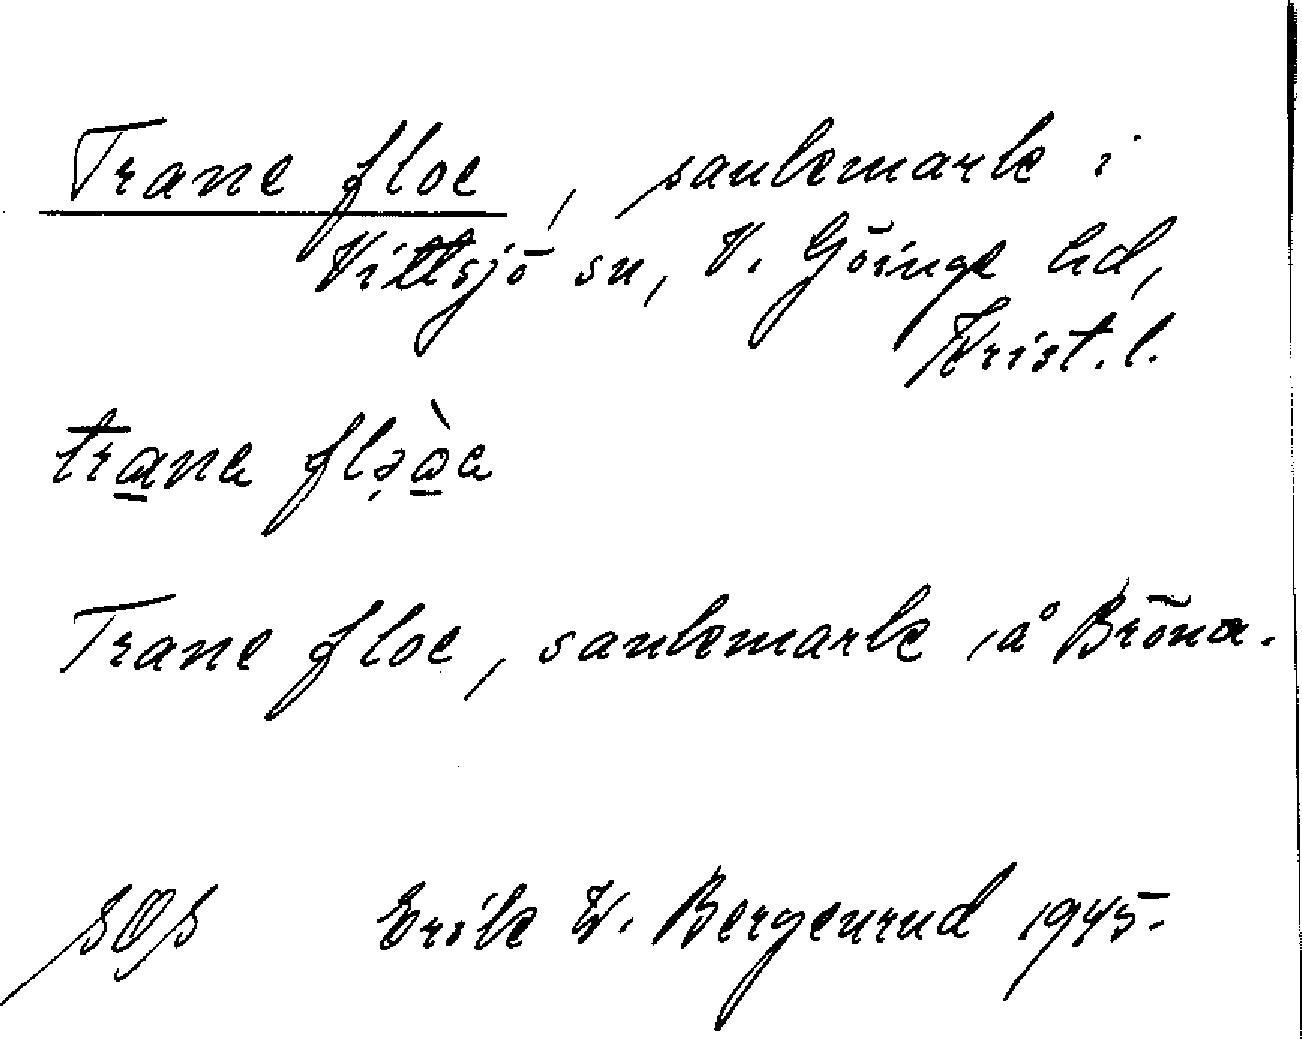 Trane floe, sankmark i
Vittsjö sn, V. Göinge hd,
Krist. l.
trana fləòa
Trane floe, sankmark å Bröna.
SOS Erik W. Bergenrud 1945.